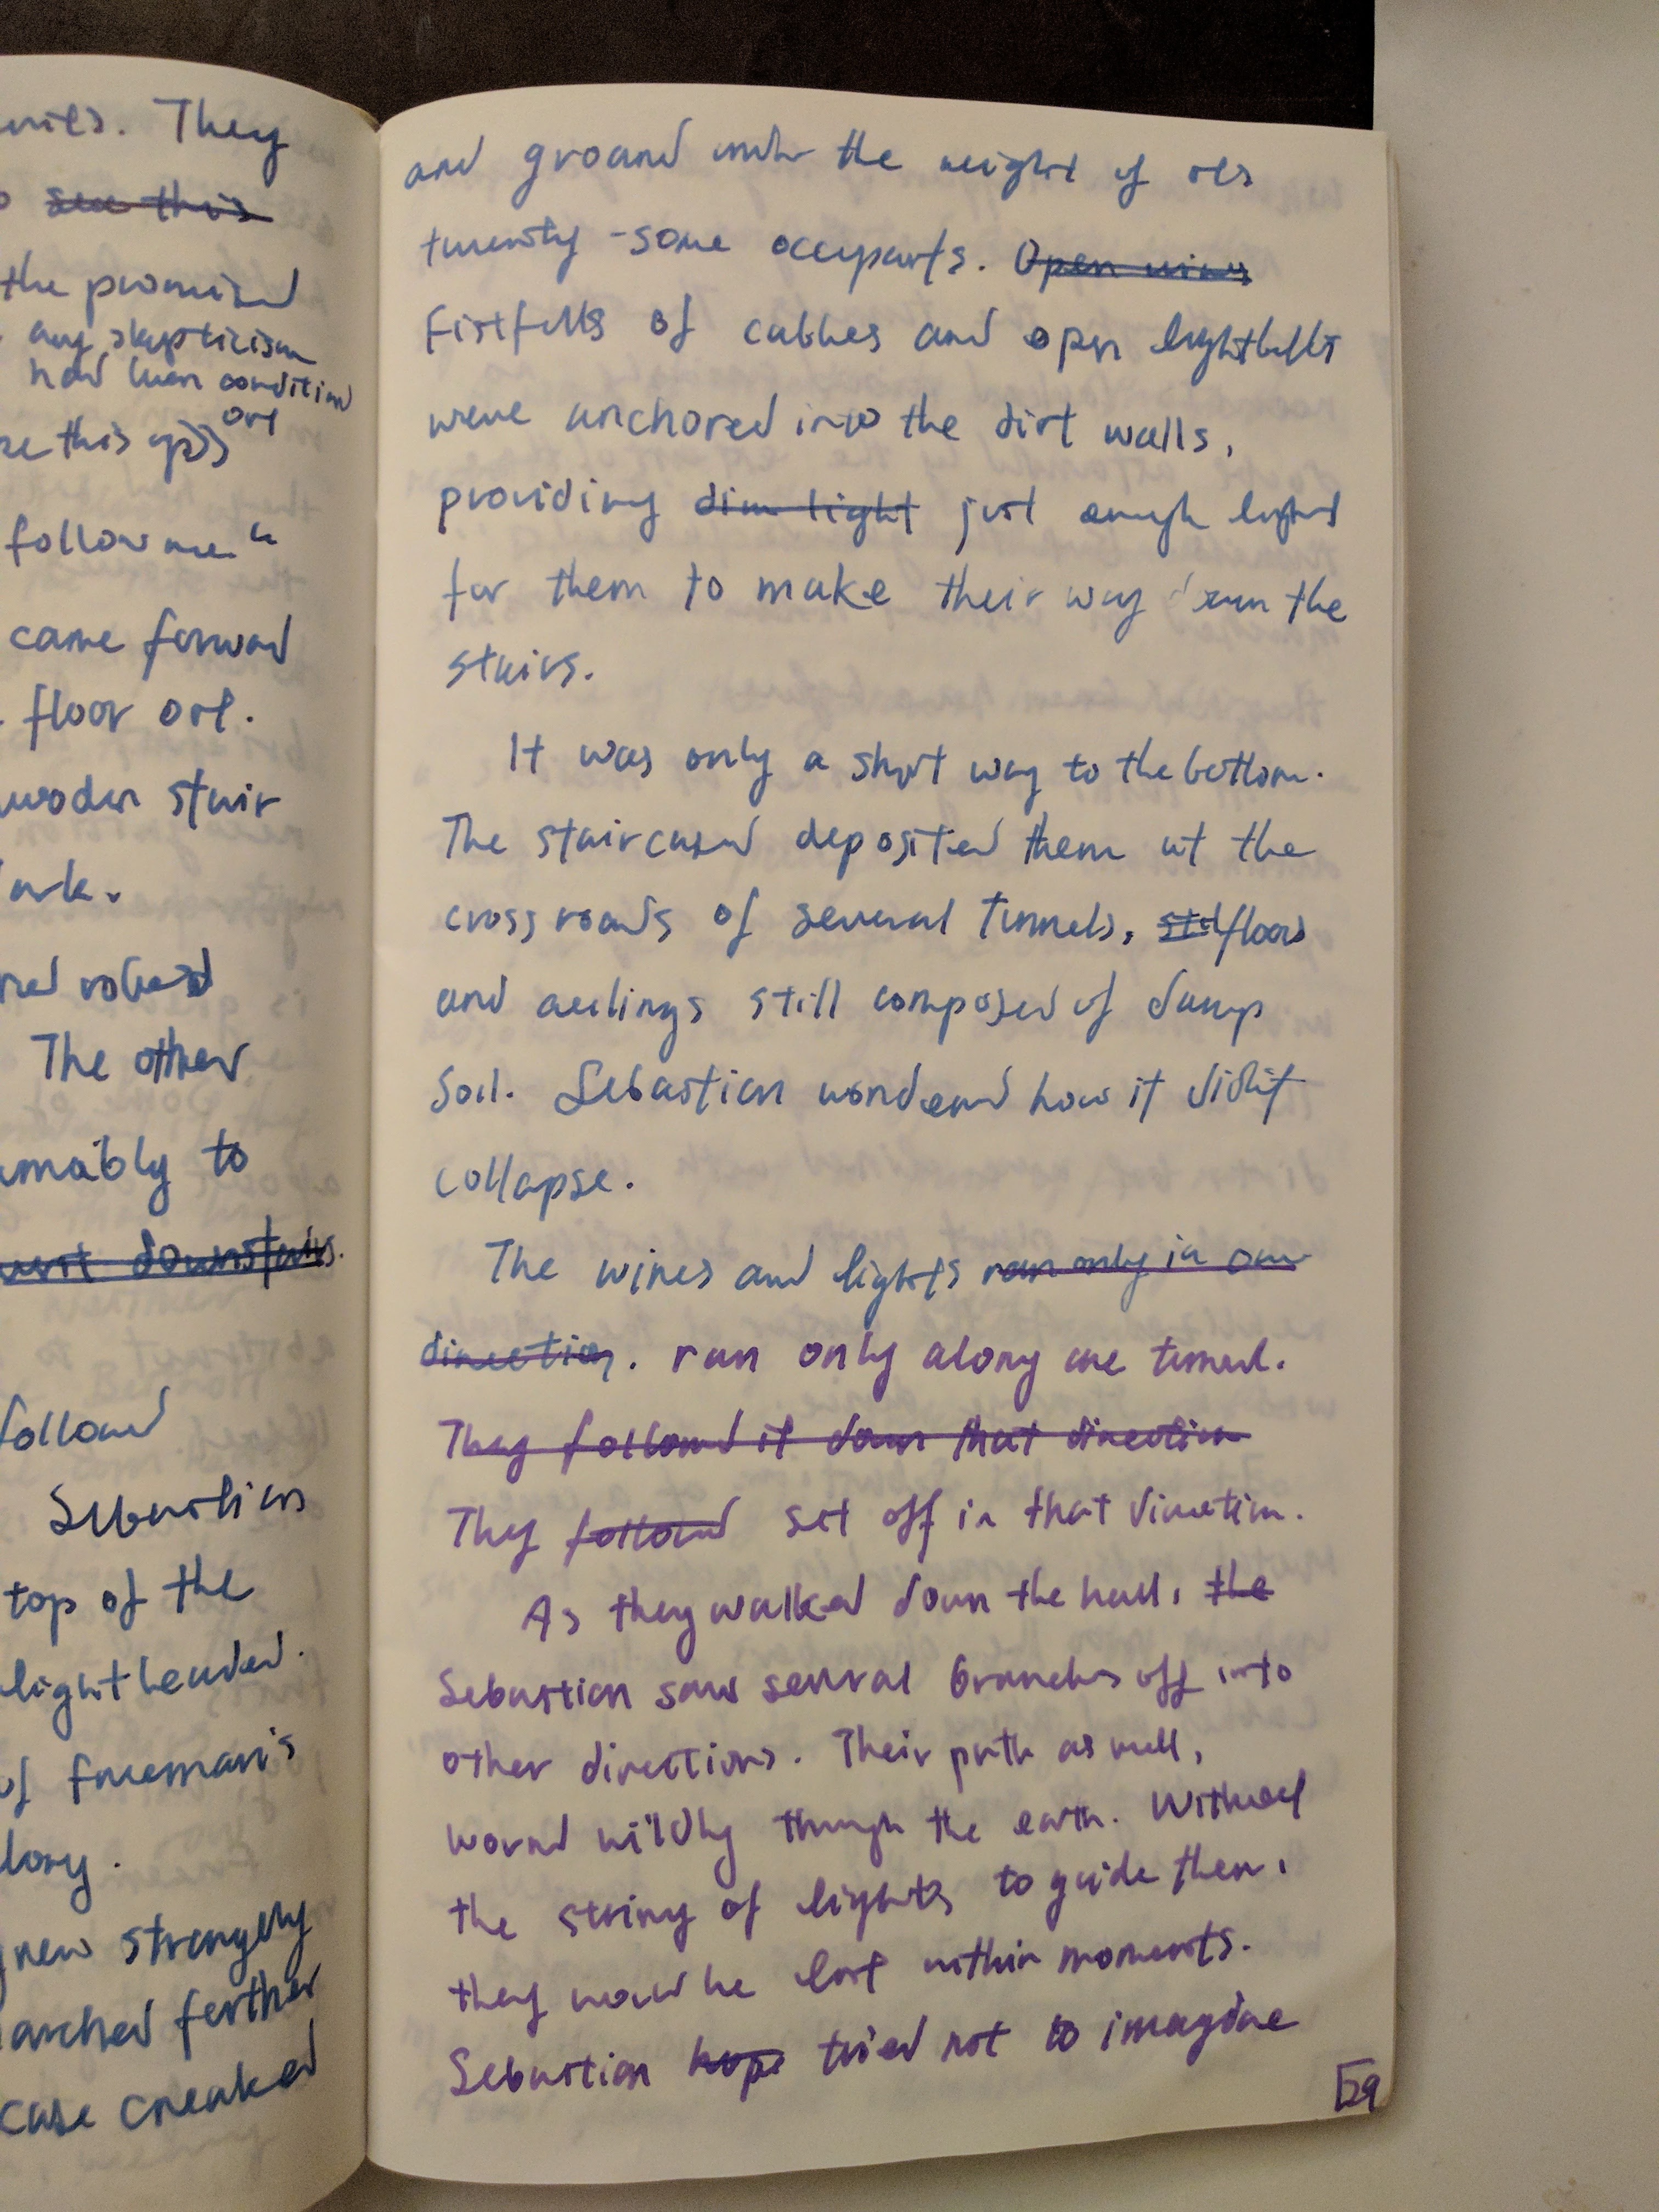 They
see this
the promised
any skepticism
had been condition
out
this
follow me"
came forward
floor out.
wooden stair
robed
The other
to
downstairs.
followed
Sebastian
top of the
lightheaded.
of freeman's
long.
strangely
further
case creaked
and groand under the weight of its
twenty-some occupants. Open wires
fistfulls of cables and open lightbulbs
were anchored into the dirt walls,
providing dim light just enough light
for them to make their way down the
stairs.
It was only a short way to the bottom.
The staircased deposited them at the
crossroads of several tunnels, stil floors
and ceilings still composed of damp
soil. Sebastian wondered how it didn't
collapse.
The wires and lights ran only in one
direction. ran only along one tunnel.
They followed it down that direction
They followed set off in that direction.
As they walked down the hall, the
Sebastian saw several branches off into
other directions. Their path as well,
wound wildly through the earth. Without
the string of lights to guide them,
they would be lost within moments.
Sebastian hope tried not to imagine
29